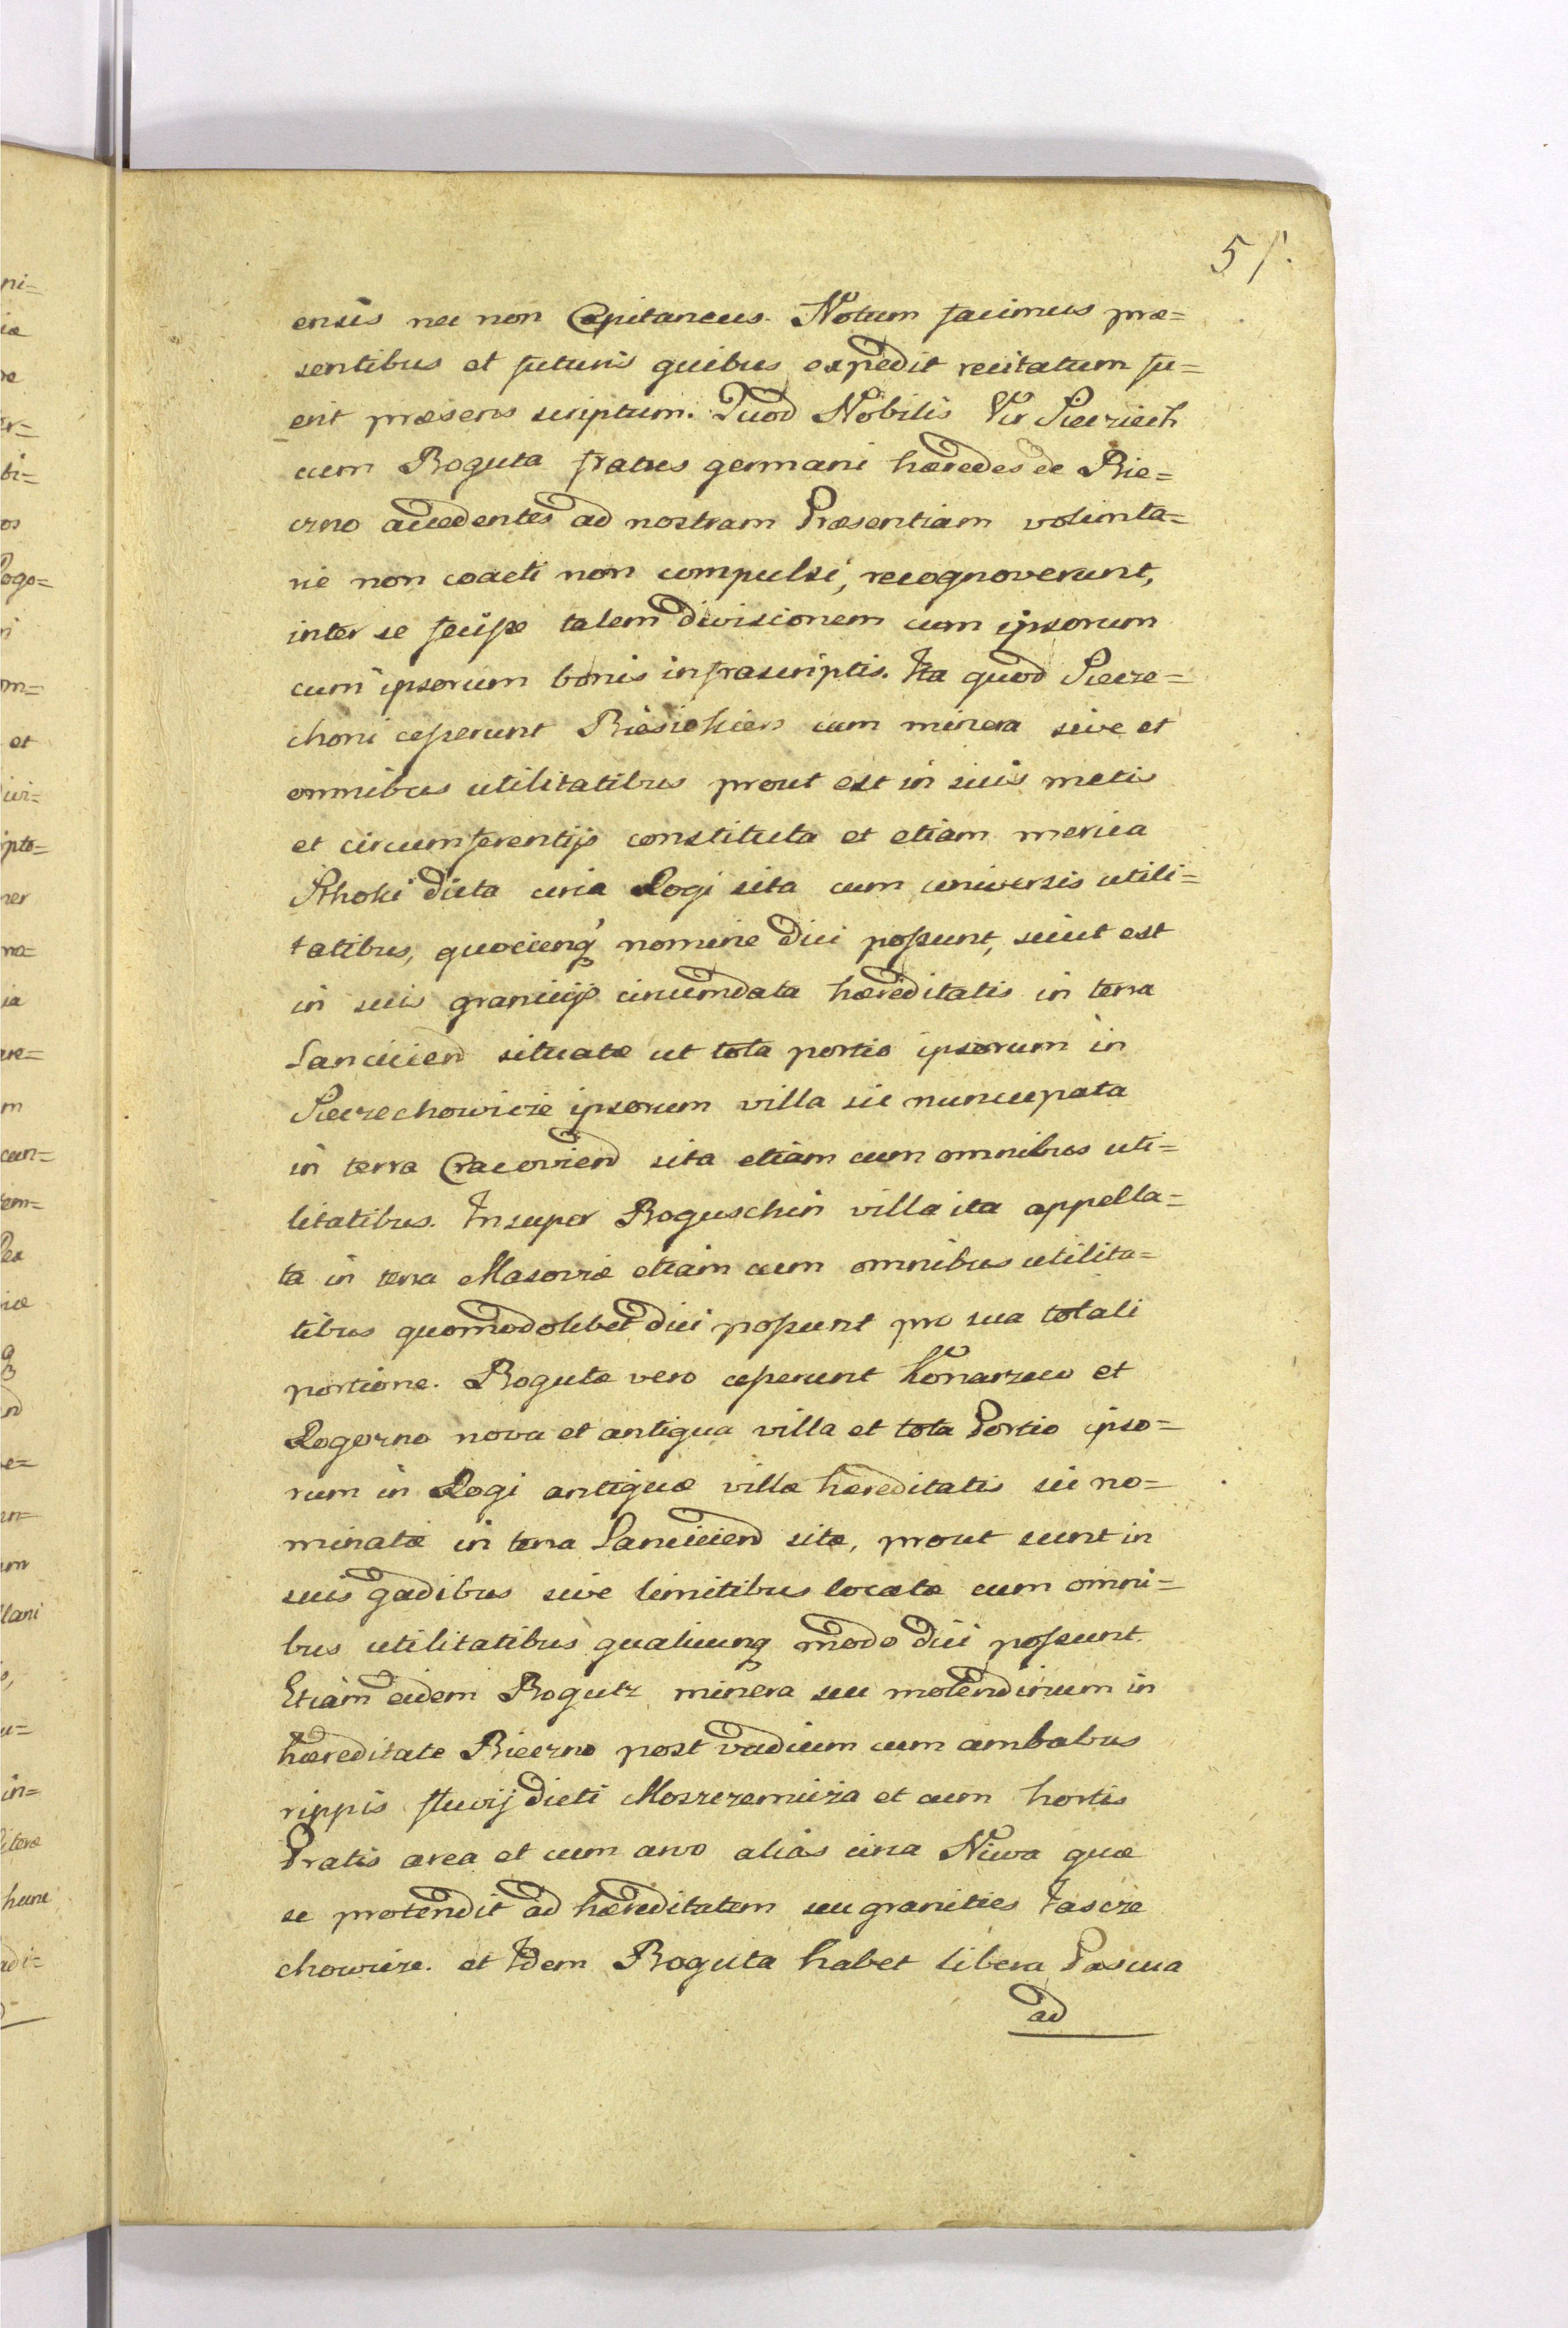 51.
ensis nec non Capitaneus. Notum facimus præ=
sentibus et futuris quibus expedit recitatum fu=
erit præsens scriptum. Quod Nobilis Vir Piecziech
cum Boguta fratres germani hæredes de Bie=
czno accedentes ad nostram Præsentiam volunta=
rie non coacti non compulsi, recognoverunt,
inter se fecisse talem divisionem cum ipsorum
cum ipsorum bonis infrascriptis. Ita quod Piecze=
choni cesserunt Biesiekiers cum minera sive et
omnibus utilitatibus prout est in suis metis
et circumferentijs constituta et etiam merica
dicta circa Rogi sita cum universis utili=
tatibus, quocienq nomine dici possunt, sicut est
in suis granicijs circumdata hæreditatis in terra
Lanciciens situatæ ut tota portio ipsorum in
Pieczechowicze ipsorum villa sic nuncupata
in terra Cracoviens sita etiam cum omnibus uti=
litatibus. Insuper Boguschin villa ita appella=
ta in terra Masoviæ etiam cum omnibus utilita=
tibus quomodolibet dici possunt pro sua totali
portione. Bogutæ vero cesserunt Konarzewo et
Rogorno nova et antiqua villa et tota Portio ipso=
rum in Rogi antiquæ villæ hæreditatis sic no=
minatæ in terra Lanciciens sitæ, prout sunt in
suis gadibus sive limitibus locatæ cum omni=
bus utilitatibus qualicunq modo dici possunt.
Etiam eidem Bogutæ minera seu molendinum in
hæreditate Bieczno post vadium cum ambabus
rippis fluvij dicti Moszczemicza et cum hortis
Pratis area et cum arvo alias circa Niwa quæ
se protendit ad hæreditatem seu granities Pascze
chowicze. et Idem Boguta habet libera Pascua
ad